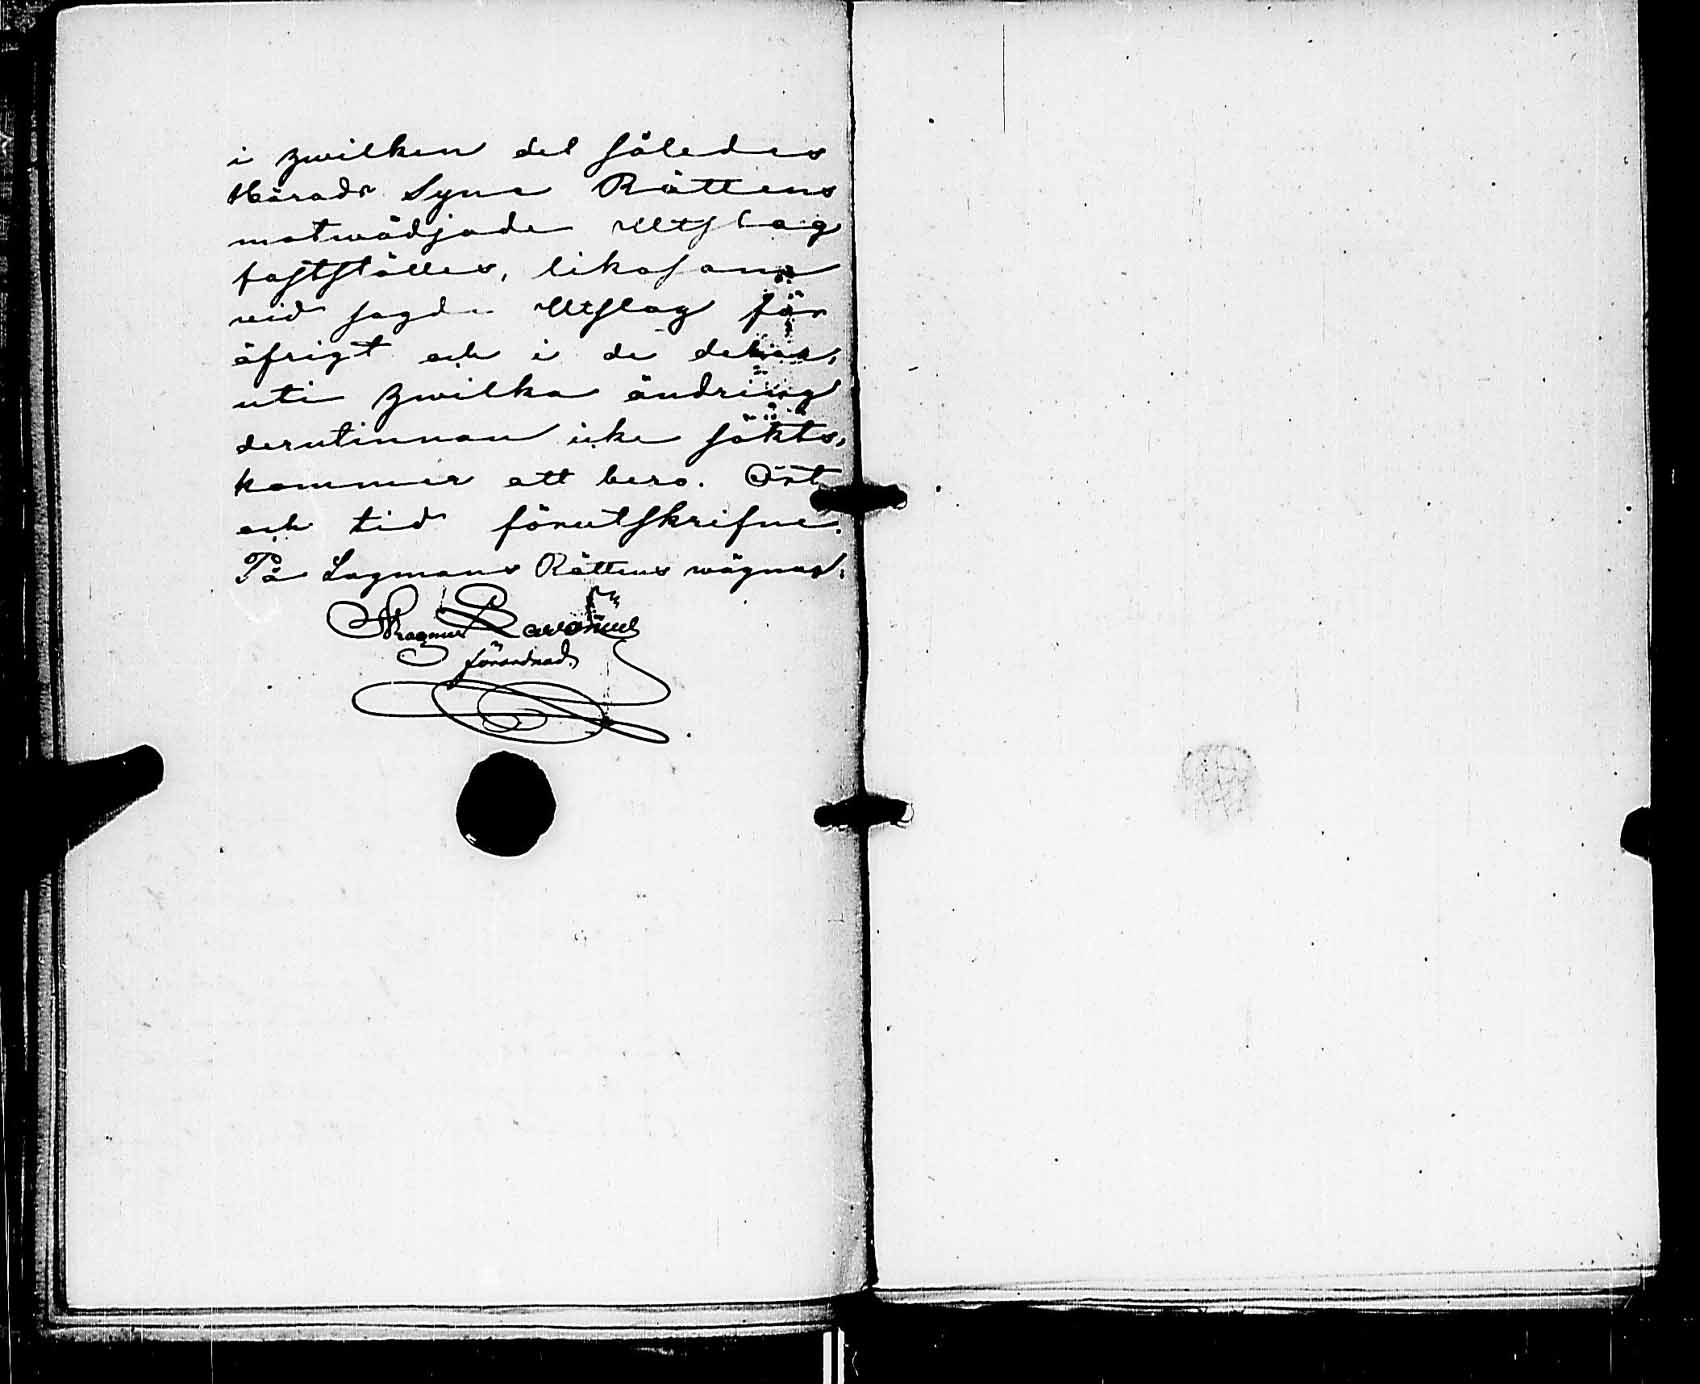 i hwilken del således
Härads Syne Rättens
motwädjade Utslag
fastställes, likasom
vid sagde Utslag för
öfrigt och i de delar,
uti hwilka ändring
derutinnan icke sökts,
kommer att bero. Ort
och tid förutskrifne.
På Lagmans Rättens wägnar,
Magnus
förordnad.